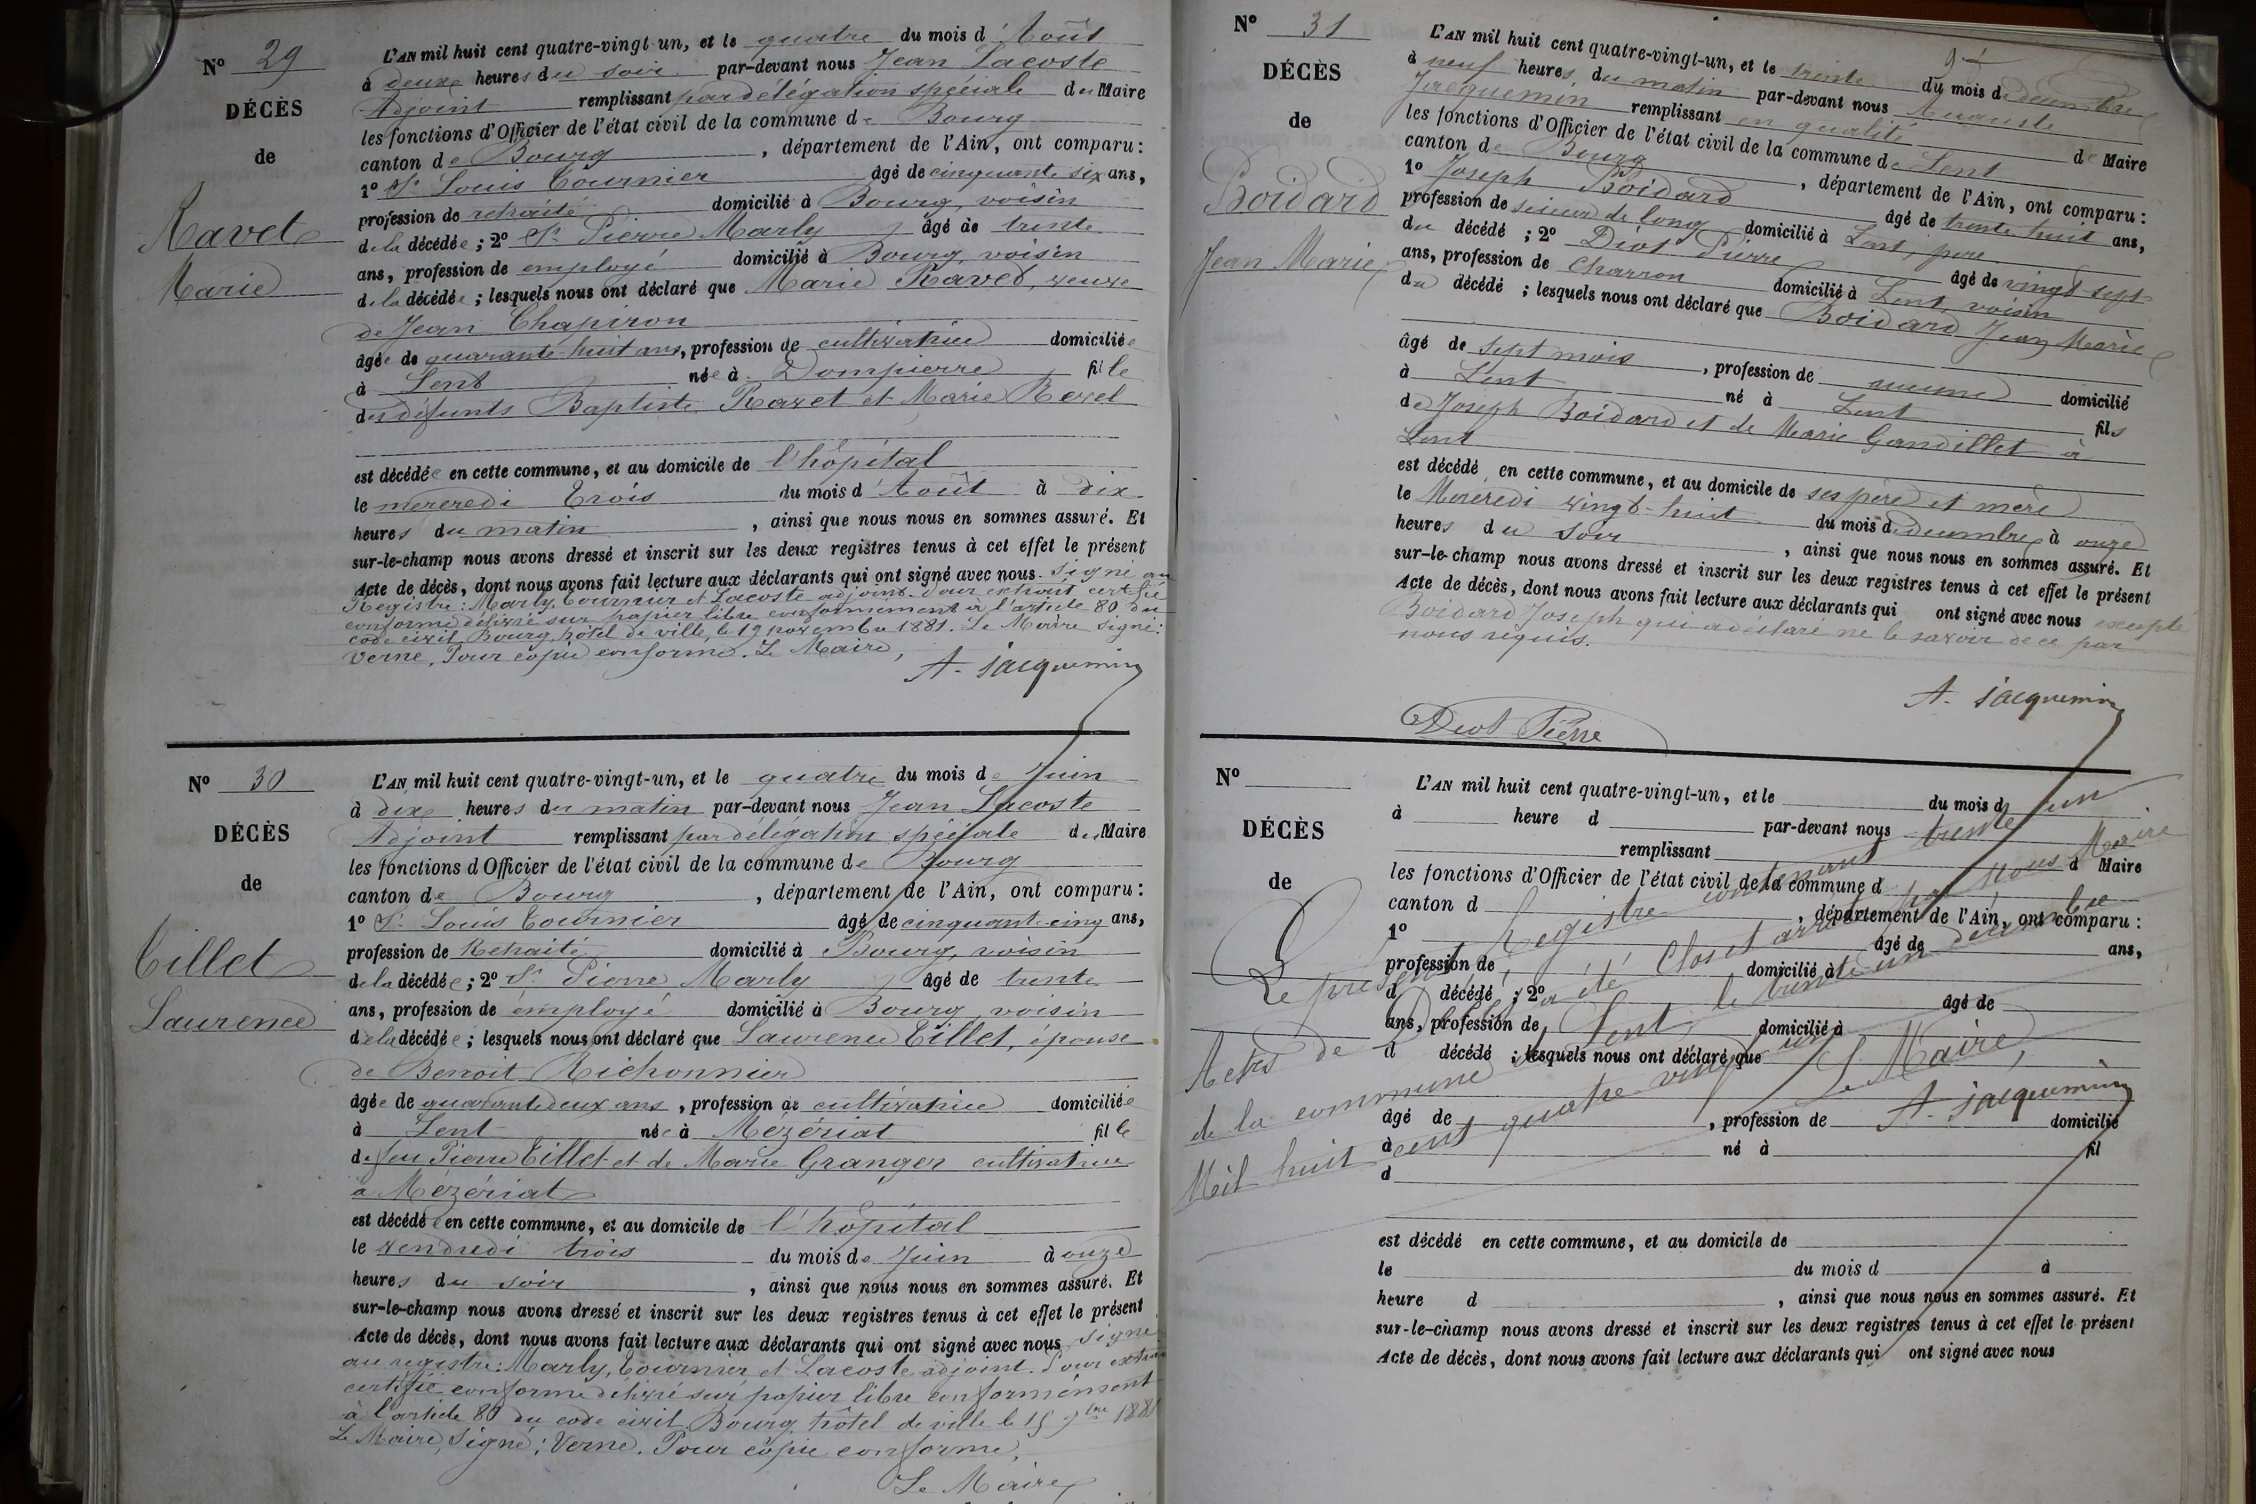 N° 29
DÉCÈS
de
Ravet
Marie
L'AN mil huit cent quatre-vingt-un, et le quatre du mois d'Août
à deux heures du soir par-devant nous Jean Lacoste
Adjoint remplissant par délégation spéciale du Maire
les fonctions d'Officier de l'état civil de la commune de Bourg
canton de Bourg, département de l'Ain, ont comparu :
1° Sr Louis Tournier âgé de cinquante six ans,
profession de retraité domicilié à Bourg, voisin
de la décédée ; 2° Sr Pierre Marly âgé de trente
ans, profession de employé domicilié à Bourg, voisin
de la décédée ; lesquels nous ont déclaré que Marie Ravet, veuve
de Jean Chapiron
âgée de quarante-huit ans, profession de cultivatrice domiciliée
à Lent née à Dompierre fille
des défunts Baptiste Ravet et Marie Revel
est décédée en cette commune, et au domicile de l'hôpital
le mercredi trois du mois d'Août à dix
heures du matin, ainsi que nous nous en sommes assuré. Et
sur-le-champ nous avons dressé et inscrit sur les deux registres tenus à cet effet le présent
Acte de décès, dont nous avons fait lecture aux déclarants qui ont signé avec nous. Signé au
Registre : Marly, Tournier et Lacoste adjoint. Pour extrait certifié
conforme délivré sur papier libre conformément à l'article 80 du
code civil Bourg, hôtel de ville, le 19 novembre 1881. Le Maire signé :
Verne. Pour copie conforme. Le Maire,
A. Jacquemin
N° 30
DÉCÈS
de
Tillet
Laurence
L'AN mil huit cent quatre-vingt-un, et le quatre du mois de Juin
à dix heures du matin par-devant nous Jean Lacoste
Adjoint remplissant par délégation spéciale du Maire
les fonctions d'Officier de l'état civil de la commune de Bourg
canton de Bourg, département de l'Ain, ont comparu :
1° Sr Louis Tournier âgé de cinquant-cinq ans,
profession de Retraité domicilié à Bourg, voisin
de la décédée ; 2° Sr Pierre Marly âgé de trente
ans, profession de employé domicilié à Bourg, voisin
de la décédée ; lesquels nous ont déclaré que Laurence Tillet, épouse
de Benoit Richonnier
âgée de quarante deux ans, profession de cultivatrice domiciliée
à Lent née à Mézériat fille
de feu Pierre Tillet et de Marie Granger cultivatrice
à Mézériat
est décédée en cette commune, et au domicile de l'hôpital
le vendredi trois du mois de Juin à onze
heures du soir, ainsi que nous nous en sommes assuré. Et
sur-le-champ nous avons dressé et inscrit sur les deux registres tenus à cet effet le présent
Acte de décès, dont nous avons fait lecture aux déclarants qui ont signé avec nous signé
au registre : Marly, Tournier et Lacoste adjoint. Pour extrait
certifié conforme délivré sur papier libre conformément
à l'article 80 du code civil Bourg, hôtel de ville le 19 9bre 1881
Le Maire, Signé : Verne. Pour copie conforme,
Le Maire
N° 31
DÉCÈS
de
Boidard
Jean Marie
L'AN mil huit cent quatre-vingt-un, et le trente du mois de décembre
à neuf heures du matin par-devant nous Auguste
Jacquemin remplissant en qualité de Maire
les fonctions d'Officier de l'état civil de la commune de Lent
canton de Bourg, département de l'Ain, ont comparu :
1° Joseph Boidard âgé de trente huit ans,
profession de scieur de long domicilié à Lent, père
du décédé ; 2° Diot Pierre âgé de vingt sept
ans, profession de charron domicilié à Lent, voisin
du décédé ; lesquels nous ont déclaré que Boidard Jean Marie
âgé de sept mois, profession de aucune domicilié
à Lent né à Lent fils
de Joseph Boidard et de Marie Gandillet à
Lent
est décédé en cette commune, et au domicile de ses père et mère
le Mercredi vingt-huit du mois de décembre à onze
heures du soir, ainsi que nous nous en sommes assuré. Et
sur-le-champ nous avons dressé et inscrit sur les deux registres tenus à cet effet le présent
Acte de décès, dont nous avons fait lecture aux déclarants qui ont signé avec nous excepté
Boidard Joseph qui a déclaré ne le savoir de ce par
nous requis.
A. Jacquemin
Diot Pierre
N°
DÉCÈS
de
L'AN mil huit cent quatre-vingt-un, et le du mois d
à heure d par-devant nous
remplissant d Maire
les fonctions d'Officier de l'état civil de la commune d
canton d , département de l'Ain, ont comparu :
1° âgé de ans,
profession de domicilié à
d décédé ; 2° âgé de
ans, profession de domicilié à
d décédé ; lesquels nous ont déclaré que
âgé de , profession de domicilié
à né à fil
d
est décédé en cette commune, et au domicile de
le du mois d à
heure d , ainsi que nous nous en sommes assuré. Et
sur-le-champ nous avons dressé et inscrit sur les deux registres tenus à cet effet le présent
Acte de décès, dont nous avons fait lecture aux déclarants qui ont signé avec nous
Le présent Registre contenant trente un
Actes de Décès a été Clos et arrêté par Nous Maire
de la commune de Lent, le trente un décembre
Mil huit cent quatre vingt un
Le Maire,
A. Jacquemin